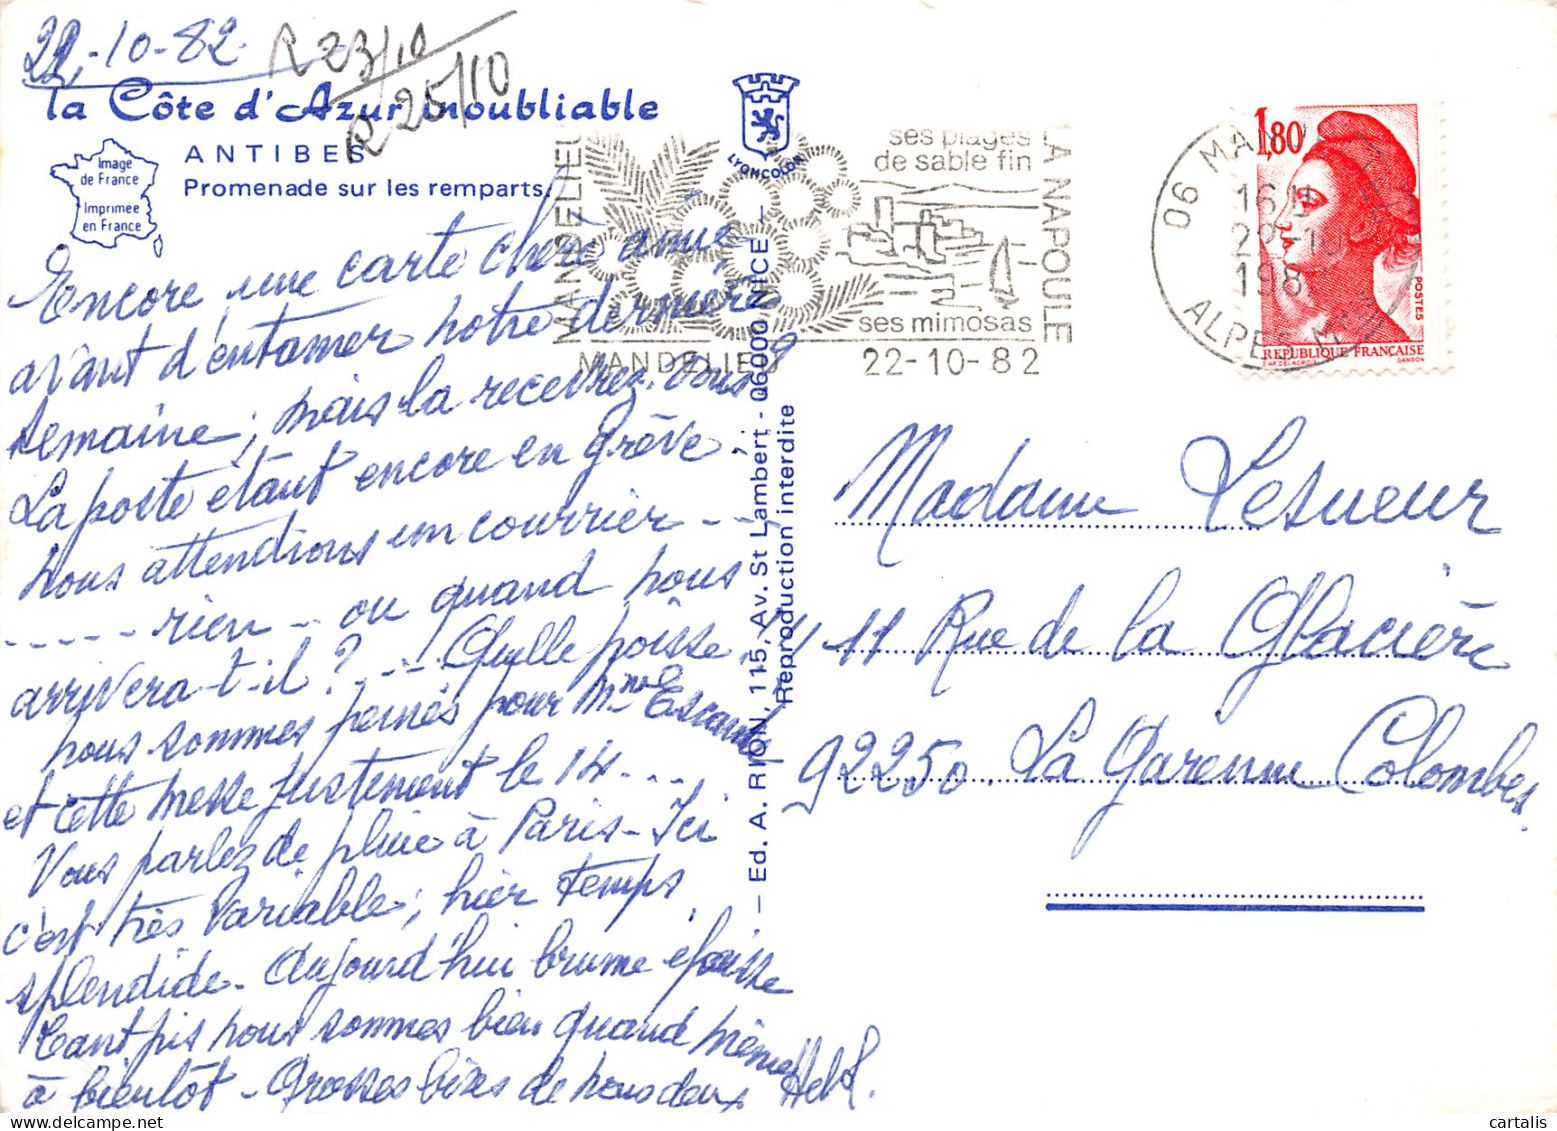 22-10-82
R 23/10
R 25/10
la Côte d'Azur inoubliable
ANTIBES
Promenade sur les remparts.
Image
de France
Imprimée
en France
Encore une carte chère amie
avant d'entamer notre dernière
semaine; mais la recevrez-vous?
La poste étant encore en grève,
nous attendions un courrier - - -
- - - - - rien - ou quand nous
arrivera-t-il? - - - Quelle poisse.
nous sommes peinés pour Mme
et cette messe justement le 14 - - -
Vous parlez de pluie à Paris - Ici
c'est très variable; hier temps
splendide - Aujourd'hui brume épaisse
tant pis nous sommes bien quand même
à bientôt - Grosses bises de nous deux
LYONCOLOR
— Ed. A. RION, 115, Av. St Lambert - 06000 NICE —
Reproduction interdite
MANDELIEU
ses plages
de sable fin
LA NAPOULE
ses mimosas
MANDELIEU 22-10-82
06 MAN
16 H
22-10
198
ALPES M
1,80
POSTES
REPUBLIQUE FRANÇAISE
D'AP. DELACROIX
GANDON
Madame Lesueur
11 Rue de la Glacière
92250. La Garenne Colombes
cartalis